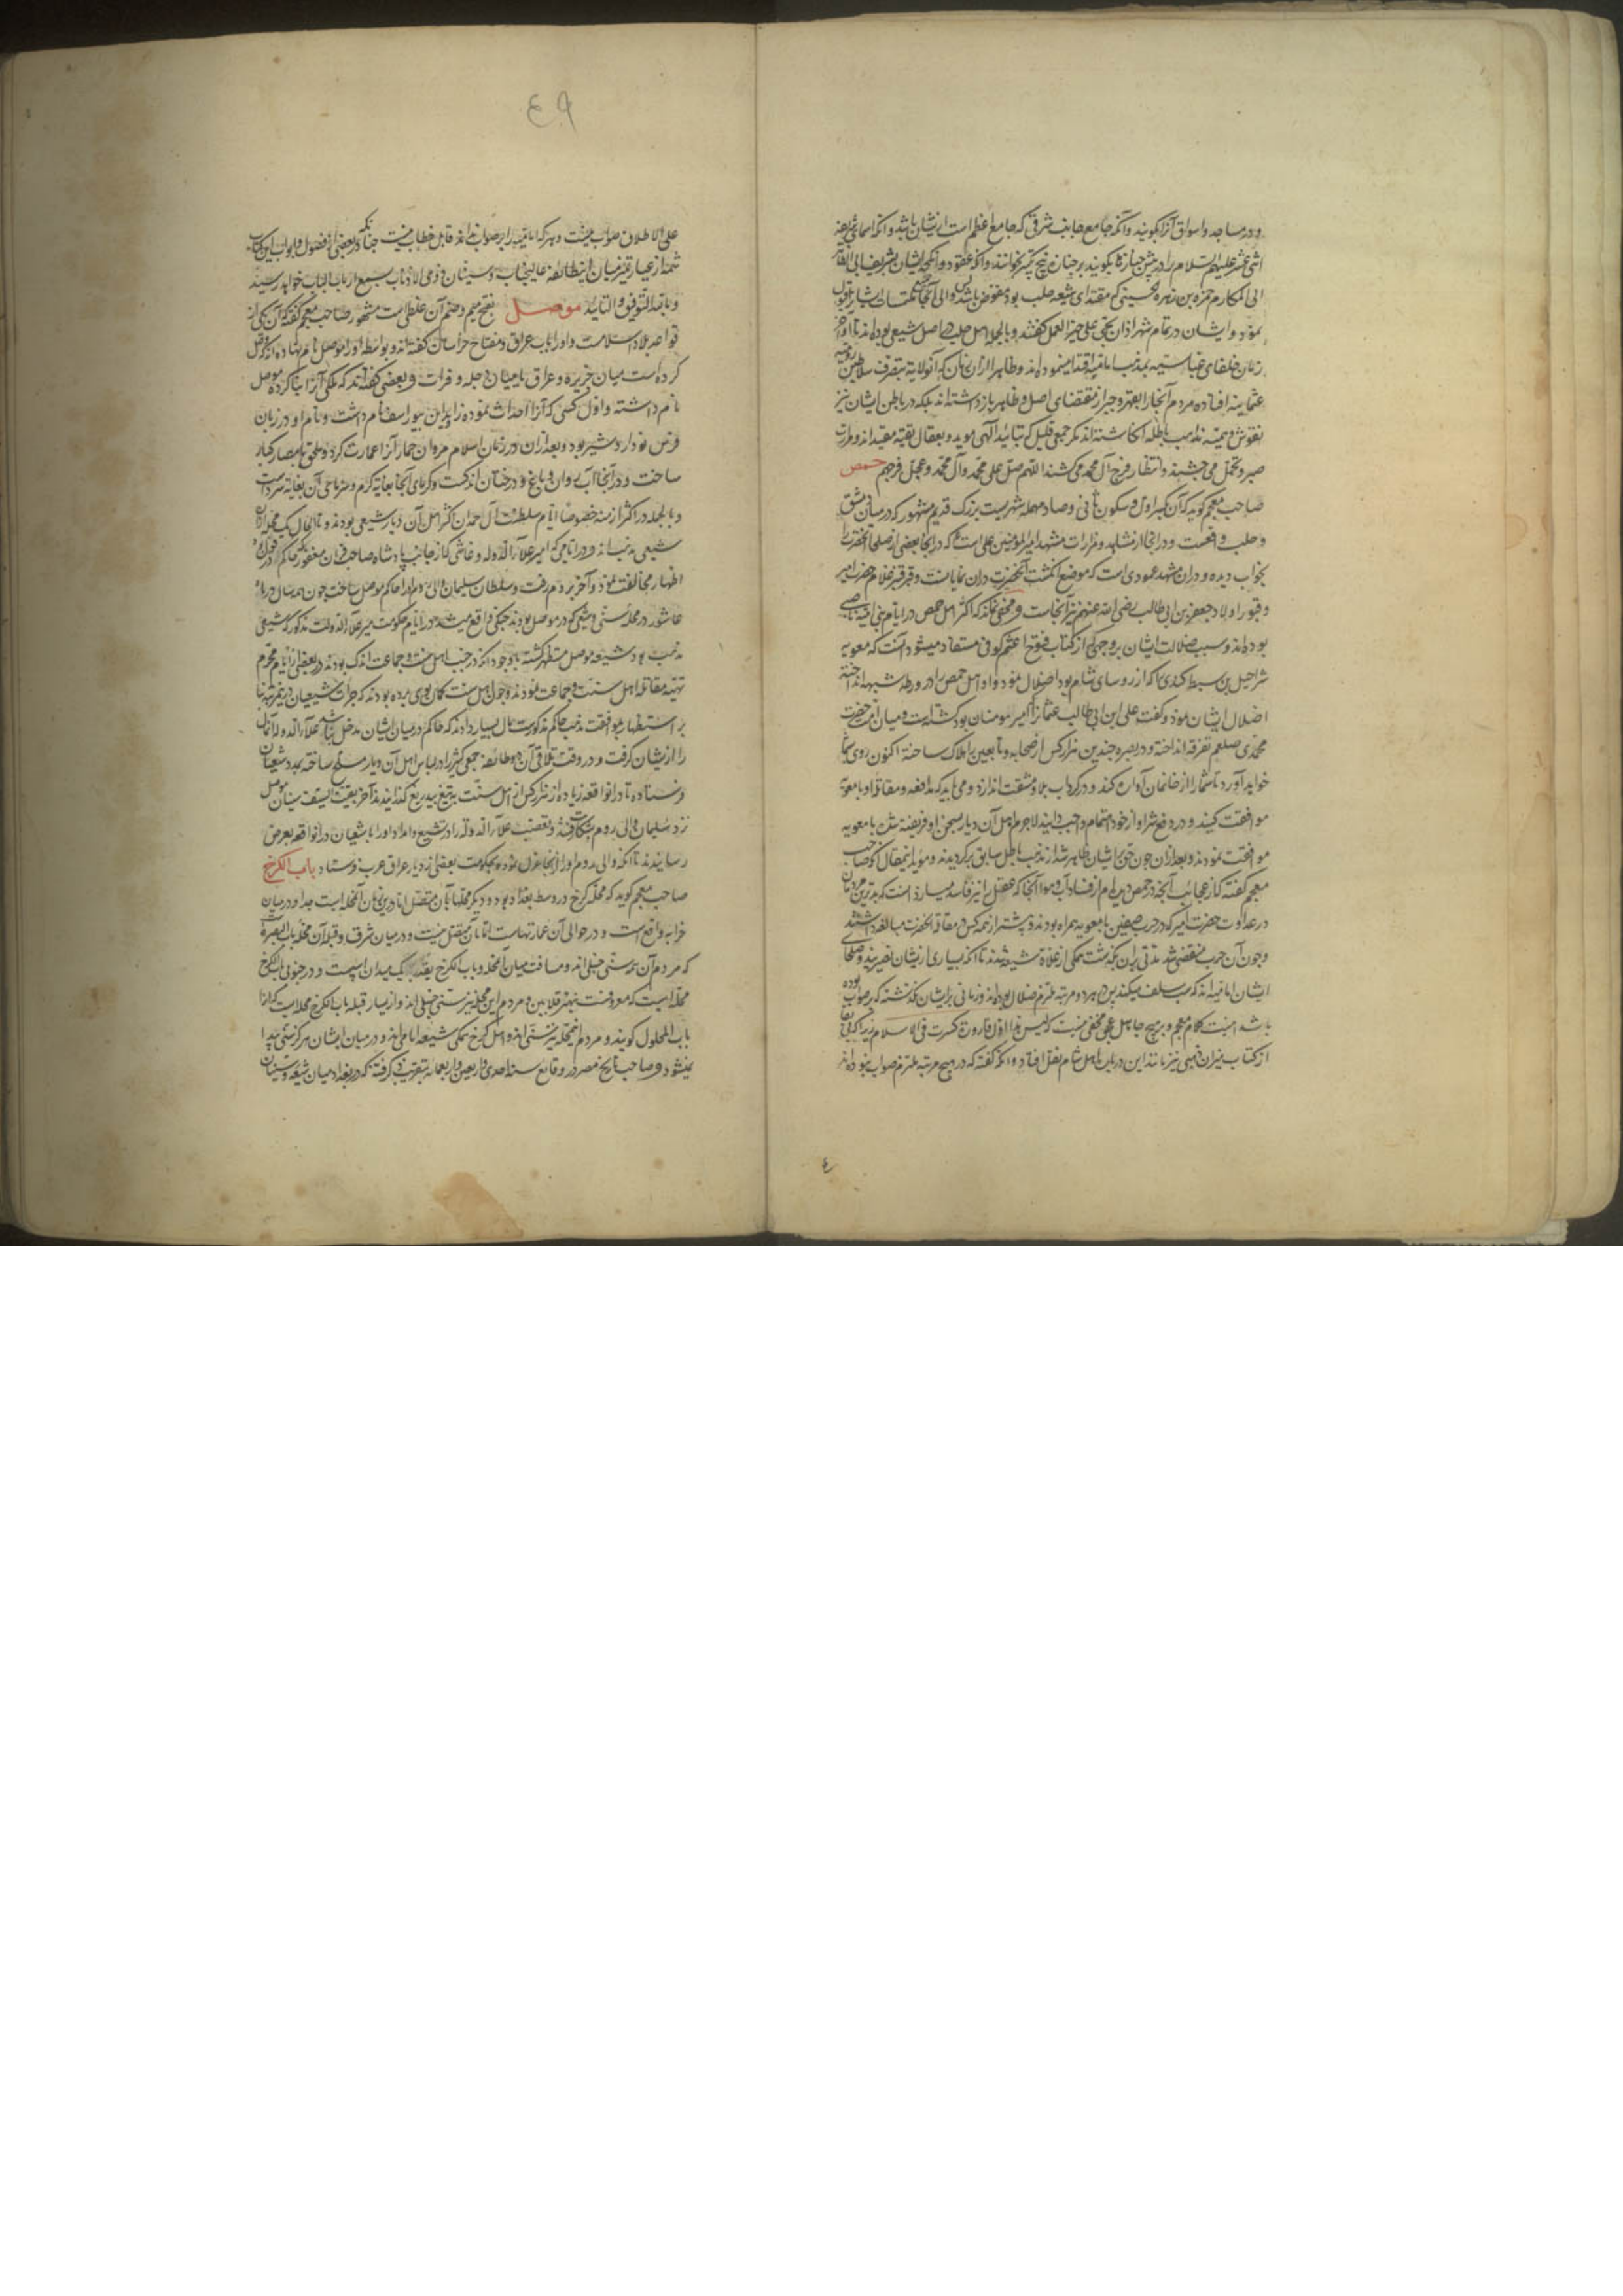 و در مساجد و اسواق آنرا بگویند و آنکه جامع جانب شرقی که جامع اعظم است از ایشان باشد و آنکه اسمای ائمه
اثنی عشر علیهم السلام را در پیش جنازها بگویند و بر جنازه پنج تکبیر بخوانند و آنکه عقود و انکحه ایشان بشریف ابی الطاهر
ابی المکارم حمزه بن زهره الحسینی که مقتدای شیعه حلب بود مفوض باشد والی آنجا ملتمسات ایشان را قبول
نمود و ایشان در تمام شهر اذان بحی علی خیر العمل گفتند و بالجمله اهل حلب در اصل شیعی بوده‌اند و تا اواخر
زمان خلفای عباسیه بمذهب امامیه اقتدا مینموده‌اند و ظاهرا از آن زمان که آن ولایت بتصرف سلاطین رومیه
عثمانیه افتاده مردم آنجا را بقهر و جبر از مقتضای اصل و ظاهر باز داشته‌اند بلکه در باطن ایشان نیز
نقوش مذاهب باطله انگاشته‌اند مگر جمعی قلیل که بتائید الهی موید و بعقال تقیه مقیداند و مرارت
صبر و تحمل می چشند و انتظار فرج آل محمد می کشند اللهم صل علی محمد و آل محمد و عجل فرجهم حمص
صاحب معجم گوید که آن بکسر اول و سکون ثانی و صاد مهمله شهریست بزرگ قدیم مشهور که در میان دمشق
و حلب واقعست و در آنجا از مشاهد و مزارات مشهد امیرالمؤمنین علی است که در آنجا بعضی از صلحا آنحضرت را
بخواب دیده و در آن مشهد عمودی است که موضع انگشت آنحضرت در آن نمایانست و قبر قنبر غلام حضرت امیر
و قبور اولاد جعفر بن ابی طالب رضی الله عنهم نیز آنجاست و مخفی نماند که اکثر اهل حمص در ایام بنی امیه ناصبی
بوده‌اند و سبب ضلالت ایشان بر وجهی که از کتاب فتوح اعثم کوفی مستفاد میشود آنست که معویه
شراحیل بن سبط کندی را که از رؤسای شام بود اضلال نمود و او اهل حمص را در ورطه شبهه انداخته
اضلال ایشان نمود و گفت علی ابن ابی طالب عثمان را که امیر مومنان بود کشته است و میان امت حضرت
محمدی صلعم تفرقه انداخته و در بصره چندین هزار کس از صحابه و تابعین را هلاک ساخته اکنون روی بشما
خواهد آورد تا شما را از خانمان آواره کند و در گرداب بلا و مشقت اندازد و می باید که بمدافعه و مقاتله او با معویه
موافقت کنید و در دفع شر او از خود اهتمام واجب دانید لاجرم اهل آن دیار بسخن او فریفته شده با معویه
موافقت نمودند و بعد از آن چون حق بر ایشان ظاهر شد از مذهب باطل سابق برگردیدند و مؤید این مقال آنکه صاحب
معجم گفته که از عجائب آنچه در حمص دیدم از فساد آب و هوا آنجا که عقل را نیز فاسد میسازد آنست که بدترین مردمان
در عداوت حضرت امیر که در حرب صفین با معویه همراه بودند و پیشتر از همه کس در مقاتله آنحضرت مبالغه داشتند
و چون آن حرب منقضی شد و مدتی بر آن بگذشت همگی از غلاة شیعه شدند تا آنکه بسیاری از ایشان نصیریند و صلحای
ایشان امامیه‌اند که سب سلف میکنند پس در هر دو مرتبه ملتزم ضلال بوده‌اند و زمانی بر ایشان نگذشته که بر صواب بوده
باشند اینست کلام معجم و بر هیچ جاهل عجمی مخفی نیست که لیس هذا اول قارورة کسرت فی الاسلام زیرا که
از کتاب میزان ذهبی نیز مانند این در باب اهل شام نقل افتاد و آنکه گفته که در هیچ مرتبه ملتزم صواب نبوده‌اند
٤٩
علی الاطلاق صواب نیست و هر که امامیه را بر صواب نداند قابل خطاب نیست چنانکه در بعضی از فصول و ابواب این کتاب
شمه از عیار تمیز میان این طائفه عالیجناب و سنیان ذوی الاذناب بسمع ارباب الباب خواهد رسید
و بالله التوفیق و التائید موصل بفتح میم و ضم آن غلطی است مشهور صاحب معجم گفته که آن یکی از
قواعد بلاد اسلامست و او را باب عراق و مفتاح خراسان گفته‌اند و بواسطه او را موصل نام نهاده‌اند که وصل
کرده است میان جزیره و عراق یا میان دجله و فرات و بعضی گفته‌اند که ملکی که آنرا بنا کرده موصل
نام داشته و اول کسی که آنرا احداث نموده راوند ابن بیوراسف نام داشت و نام او در زبان
فرس نو اردشیر بود و بعد از آن در زمان اسلام مروان حمار آنرا عمارت کرد و ملحق بامصار کبار
ساخت و در آنجا آب روان و باغ و درختان اندکست و گرمای آنجا بغایة گرم و سرمای آن بغایة سرد است
و بالجمله در اکثر ازمنه خصوصا ایام سلطنت آل حمدان اکثر اهل آن دیار شیعی بودند و تا الحال یک محله از آن
شیعی مذهب‌اند و در ایامی که امیر علاء الدوله که از جانب پادشاه صاحبقران مغفور حاکم
اظهار مخالفت نمود و آخر بروم رفت و سلطان سلیمان والی روم او را حاکم موصل ساخت چون همه سال در
عاشور در محله سنی و شیعی که در موصل بودند جنگی واقع میشد در ایام حکومت میر علاء الدوله مذکور که شیعی
مذهب بود شیعه موصل مستظهر گشته با وجود آنکه در جنب اهل سنت و جماعت اندک بودند در بعضی از ایام محرم
تهیه مقاتله اهل سنت و جماعت نمودند و چون اهل سنت گمان بوی برده بودند که جرات شیعیان در این مرتبه بنا
بر استظهار بموافقت مذهب حاکم مذکورست مال بسیار دادند که حاکم در میان ایشان مدخل نباشد علاء الدوله آن مال
را از ایشان گرفت و در وقت تلاقی آن دو طائفه جمعی کثیر را در لباس اهل آن دیار مسلح ساخته بمدد شیعیان
فرستاده تا در آن واقعه زیاده از هزار کس از اهل سنت به تیغ بیدریغ گذرانیدند آخر بقیة السیف سنیان موصل
نزد سلیمان والی روم بشکایت رفته و تعصب علاء الدوله را در تشیع و امداد او را با شیعیان در آن واقعه بعرض
رسانیدند تا آنکه والی روم او را از آنجا عزل نموده بحکومت بعضی از دیار عراق عرب فرستاد باب الکرخ
صاحب معجم گوید که محله کرخ در وسط بغداد بود و دیگر محلها بآن متصل اما در این زمان آن محله است جدا و در میان
خرابه واقع است و در حوالی آن عمارتهاست اما بآن متصل نیست و در میان شرق و قبله آن محله باب البصره است
که مردم آن همه سنی حنبلی‌اند و مسافت میان آن محله و باب الکرخ بقدر یک میدان اسپ است و در جنوبی باب الکرخ
محله ایست که معروفست بنهر قلایین و مردم این محله نیز سنی حنبلی‌اند و از یسار قبله باب الکرخ محله ایست که آنرا
باب المحول گویند و مردم این محله نیز سنی‌اند و اهل کرخ همگی شیعه امامی‌اند و در میان ایشان هرگز سنی پیدا
نمیشود و صاحب تاریخ مصر در وقایع سنه احدی و اربعین و اربعمائه بتقریب ذکر گفته که در بغداد میان شیعه و سنیان